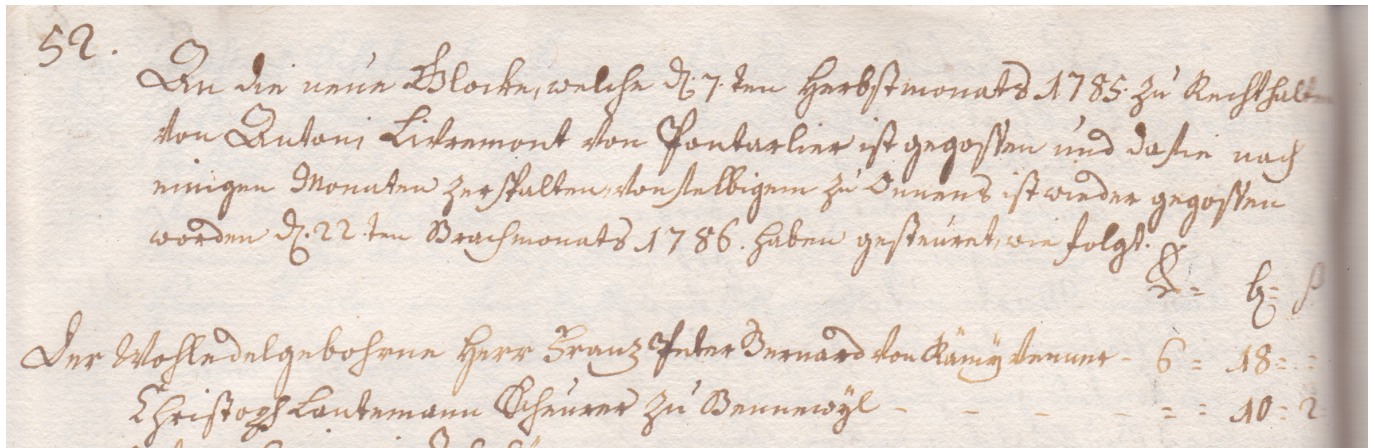 52.
An die neue Glocke, welche d. 7ten Herbstmonats 1785. zu Rechthalten
von Antoni Livremont von Pontarlier ist gegossen und da sie nach
einigen Monaten zerspalten, von selbigem zu Onnens ist wieder gegossen
worden d. 22ten Brachmonats 1786. haben gesteüret, wie folgt.
bz= ß
Der Wohledelgebohrne Herr Franz Peter Bernard von Rämÿ Venner - 6 = 18 = =
Christoph Lautemann Scheurer zu Bennewÿl - - - - = = 10 = 2